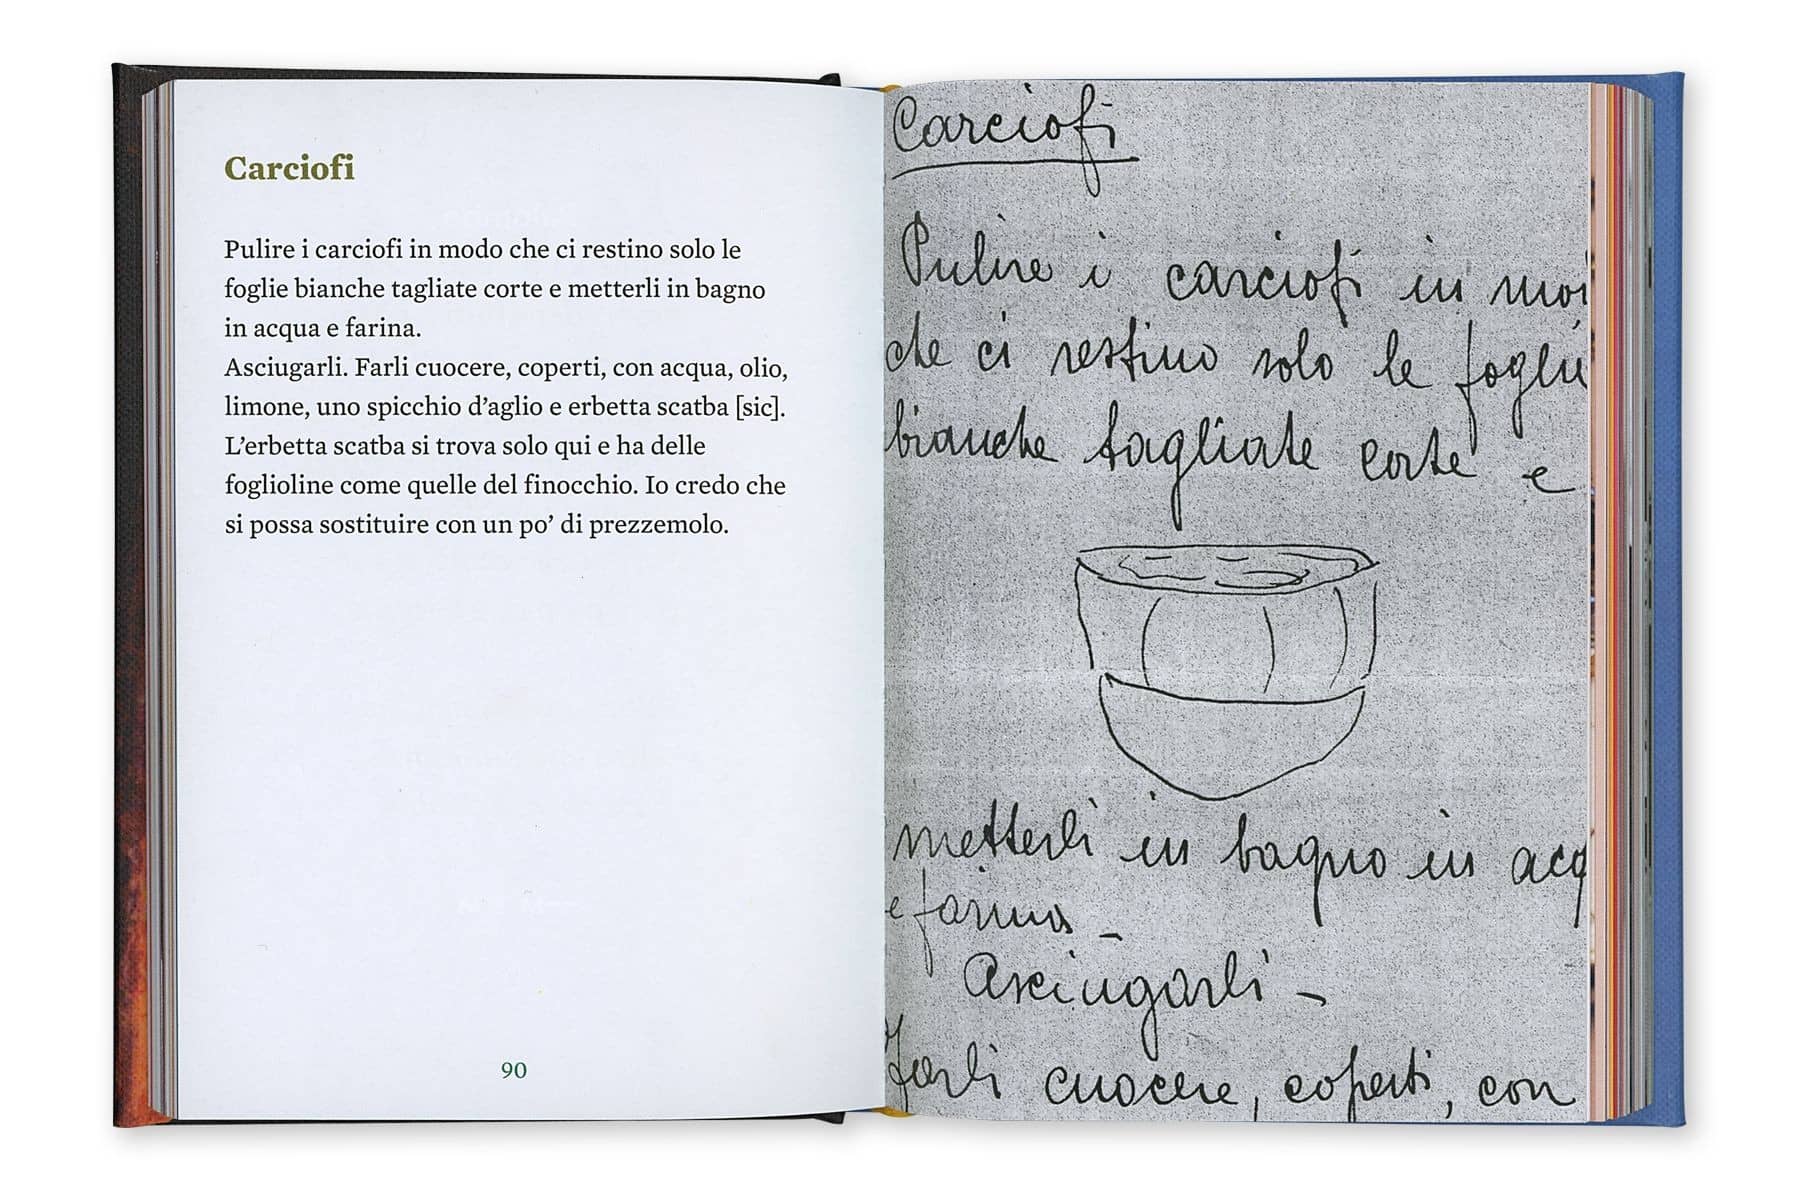 Carciofi
Pulire i carciofi in modo che ci restino solo le
foglie bianche tagliate corte e metterli in bagno
in acqua e farina.
Asciugarli. Farli cuocere, coperti, con acqua, olio,
limone, uno spicchio d’aglio e erbetta scatba [sic].
L’erbetta scatba si trova solo qui e ha delle
foglioline come quelle del finocchio. Io credo che
si possa sostituire con un po’ di prezzemolo.
90
Carciofi
Pulire i carciofi in mo
che ci restino solo le foglie
bianche tagliate corte e
metterli in bagno in acq
e farina -
Asciugarli -
Farli cuocere, coperti, con